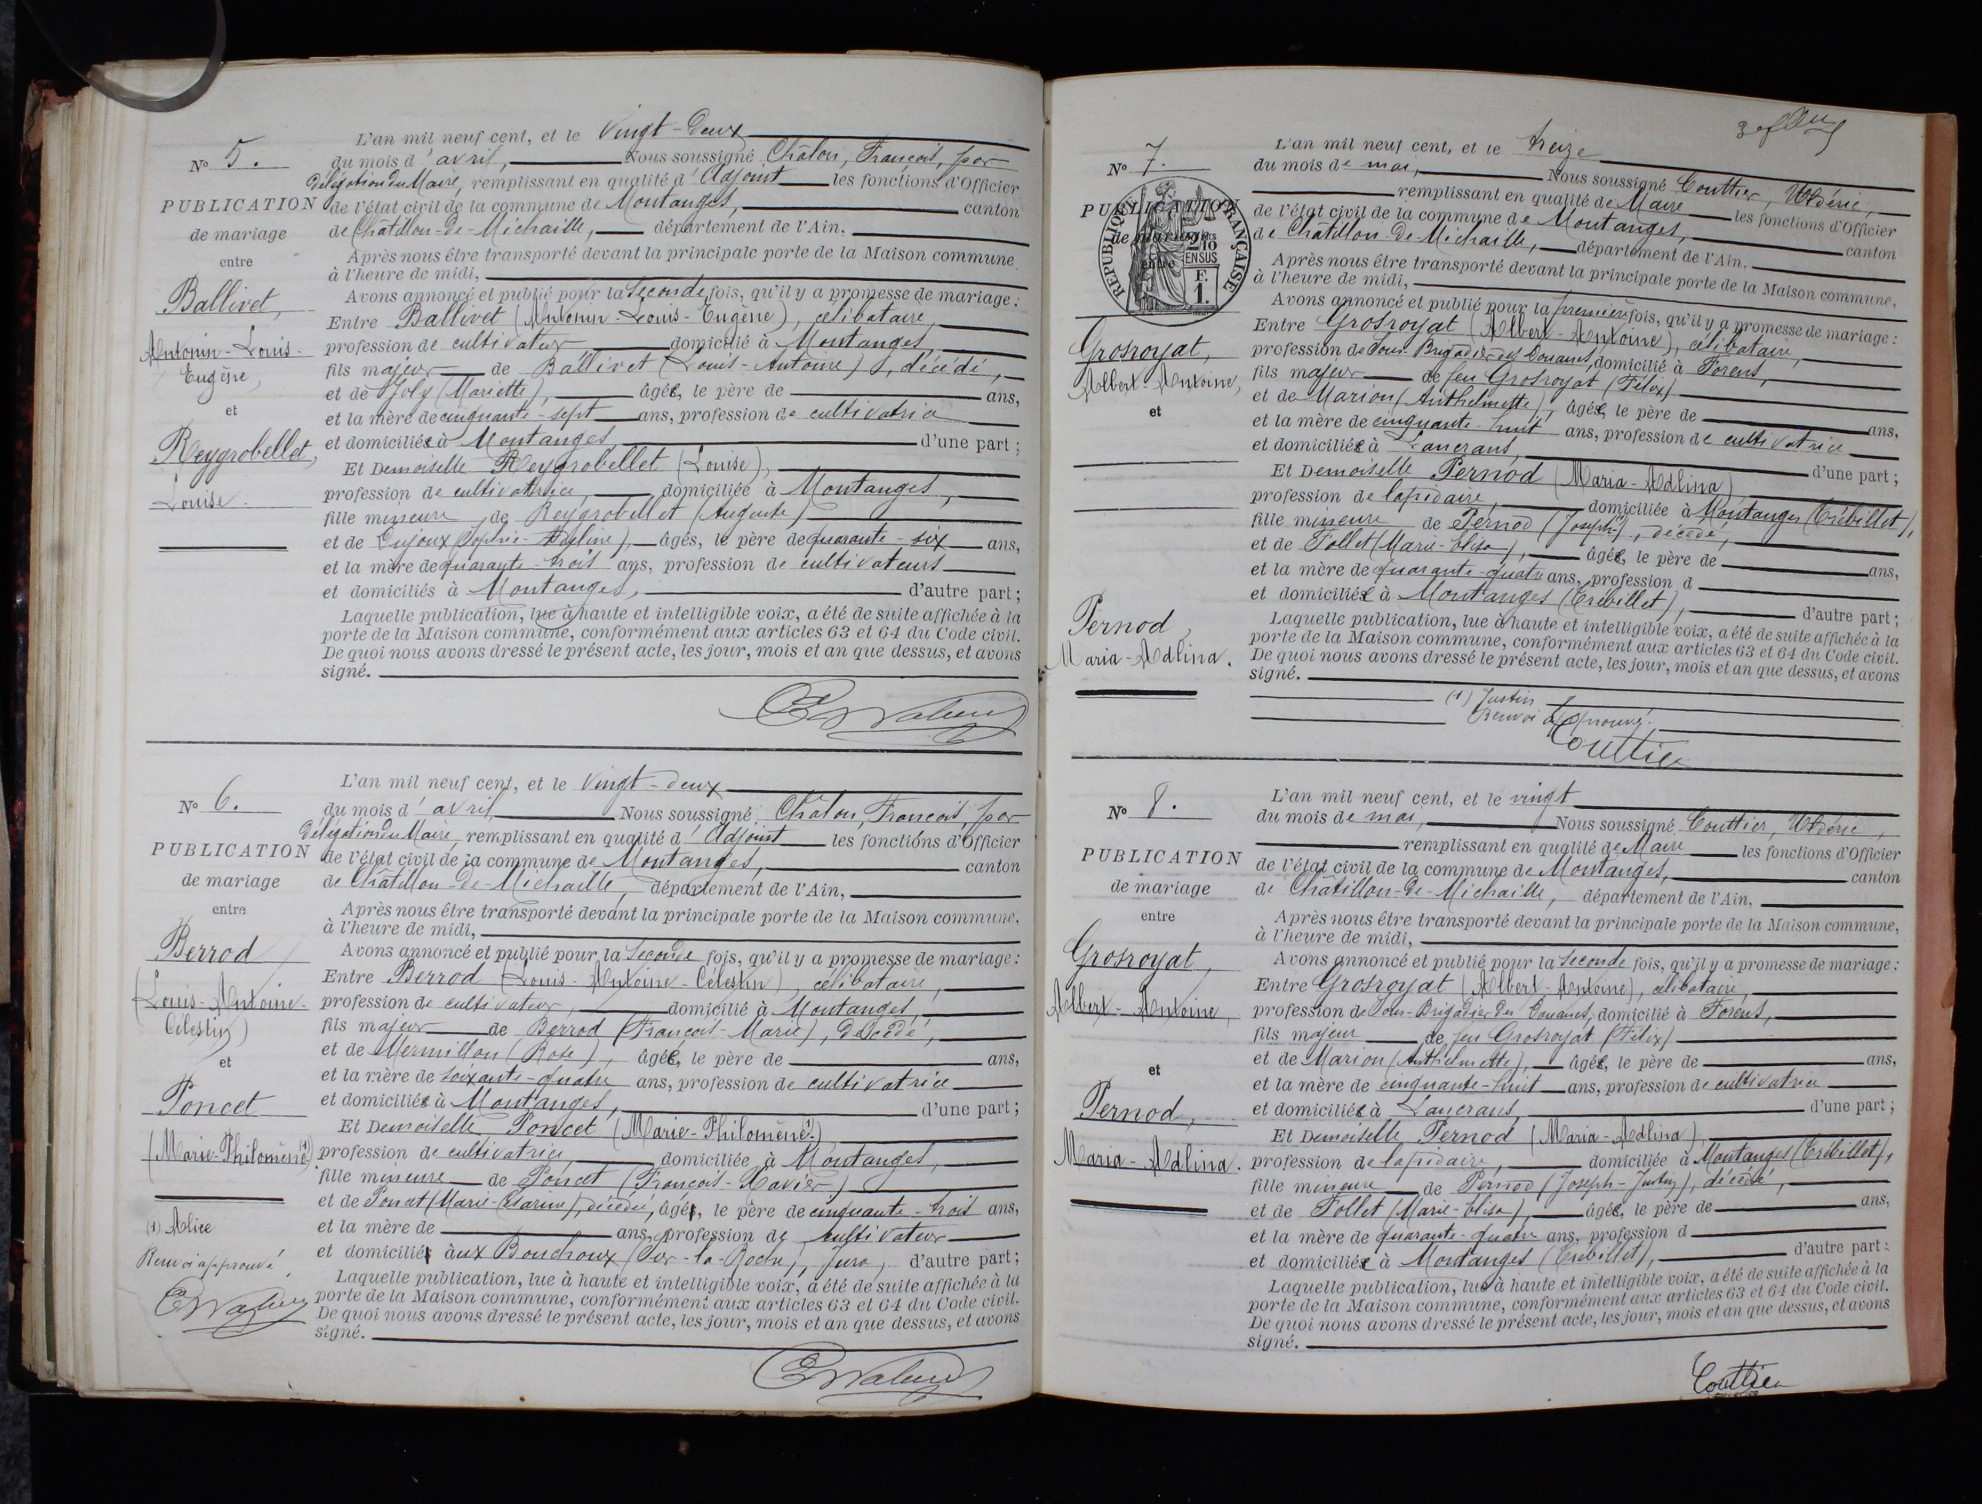 N° 5.
PUBLICATION
de mariage
entre
Ballivet,
Antonin-Louis-
Eugène,
et
Reygrobellet,
Louise.
L'an mil neuf cent, et le vingt-deux
du mois d'avril, Nous soussigné Châlon, François, par
délégation du Maire, remplissant en qualité d'Adjoint les fonctions d'Officier
de l'état civil de la commune de Montanges, canton
de Châtillon-de-Michaille, département de l'Ain.
Après nous être transporté devant la principale porte de la Maison commune
à l'heure de midi,
Avons annoncé et publié pour la Seconde fois, qu'il y a promesse de mariage:
Entre Ballivet (Antonin-Louis-Eugène), célibataire,
profession de cultivateur domicilié à Montanges,
fils majeur de Ballivet (Louis-Antoine), décédé,
et de Joly (Mariette), âgée, le père de ans,
et la mère de cinquante-sept ans, profession de cultivatrice
et domiciliée à Montanges, d'une part;
Et Demoiselle Reygrobellet (Louise),
profession de cultivatrice, domiciliée à Montanges,
fille mineure de Reygrobellet (Auguste)
et de (Sophie-), âgés, le père de quarante-six ans,
et la mère de quarante-trois ans, profession de cultivateurs
et domiciliés à Montanges, d'autre part;
Laquelle publication, lue à haute et intelligible voix, a été de suite affichée à la
porte de la Maison commune, conformément aux articles 63 et 64 du Code civil.
De quoi nous avons dressé le présent acte, les jour, mois et an que dessus, et avons
signé.
N° 6.
PUBLICATION
de mariage
entre
Berrod
(Louis-Antoine-
Célestin)
et
Poncet
(Marie-Philomène (1))
(1) Alice
Renvoi approuvé
L'an mil neuf cent, et le vingt-deux
du mois d'avril, Nous soussigné Châlon, François, par
délégation du Maire, remplissant en qualité d'Adjoint les fonctions d'Officier
de l'état civil de la commune de Montanges, canton
de Châtillon-de-Michaille, département de l'Ain,
Après nous être transporté devant la principale porte de la Maison commune,
à l'heure de midi,
Avons annoncé et publié pour la Seconde fois, qu'il y a promesse de mariage:
Entre Berrod (Louis-Antoine-Célestin), célibataire,
profession de cultivateur, domicilié à Montanges,
fils majeur de Berrod (François-Marie), décédé,
et de Mermillon (Rose), âgée, le père de ans,
et la mère de soixante-quatre ans, profession de cultivatrice
et domiciliée à Montanges, d'une part;
Et Demoiselle Poncet (Marie-Philomène (1))
profession de cultivatrice domiciliée à Montanges,
fille mineure de Poncet (François-Xavier)
et de Poncet (Marie-), décédée, âgé, le père de cinquante-trois ans,
et la mère de ans, profession de cultivateur
et domicilié aux Bouchoux (Sur-la-Roche), Jura, d'autre part;
Laquelle publication, lue à haute et intelligible voix, a été de suite affichée à la
porte de la Maison commune, conformément aux articles 63 et 64 du Code civil.
De quoi nous avons dressé le présent acte, les jour, mois et an que dessus, et avons
signé.
N° 7.
PUBLICATION
de mariage
entre
RÉPUBLIQUE FRANÇAISE
2/10
EN SUS
F.
1.
Grosroyat,
Albert-Antoine,
et
Pernod,
Maria-Adlina.
L'an mil neuf cent, et le treize
du mois de mai, Nous soussigné Couttier, Uldéric,
remplissant en qualité de Maire les fonctions d'Officier
de l'état civil de la commune de Montanges, canton
de Châtillon-de-Michaille, département de l'Ain.
Après nous être transporté devant la principale porte de la Maison commune,
à l'heure de midi,
Avons annoncé et publié pour la première fois, qu'il y a promesse de mariage:
Entre Grosroyat (Albert-Antoine), célibataire,
profession de Sous-Brigadier des Douanes, domicilié à Forens,
fils majeur de feu Grosroyat (Félix)
et de Marion (Anthelmette), âgée, le père de ans,
et la mère de cinquante-huit ans, profession de cultivatrice
et domiciliée à Lancrans, d'une part;
Et Demoiselle Pernod (Maria-Adlina)
profession de lapidaire, domiciliée à Montanges (Trébillet),
fille mineure de Pernod (Joseph (1)), décédé,
et de Tollet (Marie-Elisa), âgée, le père de ans,
et la mère de quarante-quatre ans, profession d
et domiciliée à Montanges (Trébillet), d'autre part;
Laquelle publication, lue à haute et intelligible voix, a été de suite affichée à la
porte de la Maison commune, conformément aux articles 63 et 64 du Code civil.
De quoi nous avons dressé le présent acte, les jour, mois et an que dessus, et avons
signé.
(1) Justin
Renvoi approuvé.
Couttier
N° 8.
PUBLICATION
de mariage
entre
Grosroyat,
Albert-Antoine,
et
Pernod,
Maria-Adlina.
L'an mil neuf cent, et le vingt
du mois de mai, Nous soussigné Couttier, Uldéric,
remplissant en qualité de Maire les fonctions d'Officier
de l'état civil de la commune de Montanges, canton
de Châtillon-de-Michaille, département de l'Ain.
Après nous être transporté devant la principale porte de la Maison commune,
à l'heure de midi,
Avons annoncé et publié pour la Seconde fois, qu'il y a promesse de mariage:
Entre Grosroyat (Albert-Antoine), célibataire,
profession de Sous-Brigadier des Douanes, domicilié à Forens,
fils majeur de feu Grosroyat (Félix)
et de Marion (Anthelmette), âgée, le père de ans,
et la mère de cinquante-huit ans, profession de cultivatrice
et domiciliée à Lancrans, d'une part;
Et Demoiselle Pernod (Maria-Adlina)
profession de lapidaire, domiciliée à Montanges (Trébillet),
fille mineure de Pernod (Joseph-Justin), décédé,
et de Tollet (Marie-Elisa), âgée, le père de ans,
et la mère de quarante-quatre ans, profession d
et domiciliée à Montanges (Trébillet), d'autre part:
Laquelle publication, lue à haute et intelligible voix, a été de suite affichée à la
porte de la Maison commune, conformément aux articles 63 et 64 du Code civil.
De quoi nous avons dressé le présent acte, les jour, mois et an que dessus, et avons
signé.
Couttier